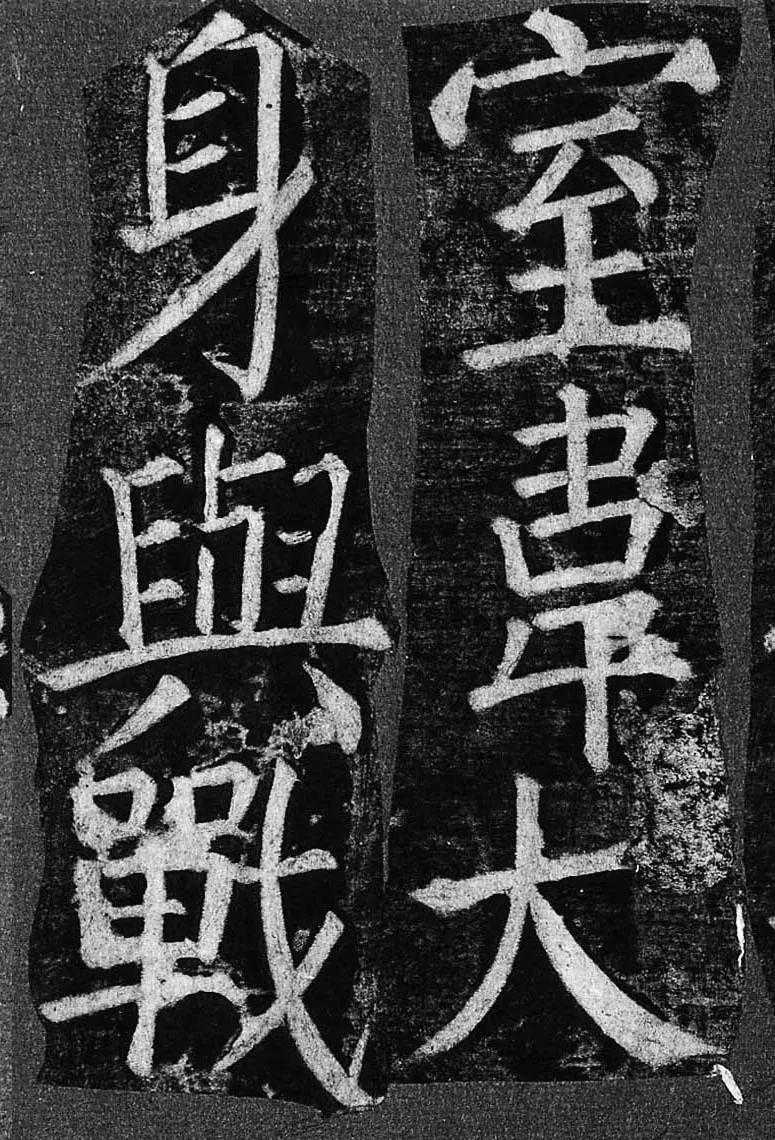 室韋大
身與戰